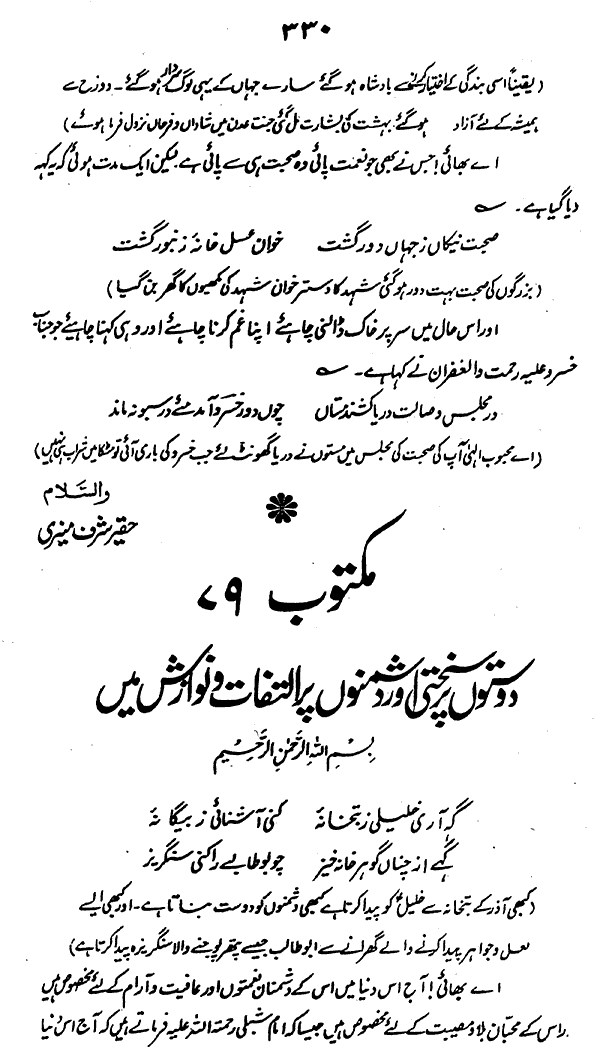 ۳۳۰
(یقیناً اسی بندگی کے اختیار کرنے سے بادشاہ ہو گئے سارے جہاں کے یہی لوگ سردار ہو گئے۔ دوزخ سے
ہمیشہ کے لئے آزاد ہو گئے بہشت کی بشارت مل گئی جنت عدن میں شاداں و فرحاں نزول فرما ہوئے)
اے بھائی! جس نے بھی جو نعمت پائی وہ صحبت ہی سے پائی ہے لیکن ایک مدت ہوئی کہ یہ کہہ
دیا گیا ہے۔ ؎
صحبت نیکاں ز جہاں دور گشت خوان عسل خانۂ زنبور گشت
(بزرگوں کی صحبت بہت دور ہو گئی شہد کا دسترخوان شہد کی مکھیوں کا گھر بن گیا)
اور اس حال میں سر پر خاک ڈالنی چاہئے اپنا غم کرنا چاہئے اور وہی کہنا چاہئے جو جناب
خسرو علیہ رحمت والغفران نے کہا ہے۔ ؎
در مجلس وصالت دریا کشند مستاں چوں دور خسرو آمد مئے در سبو نہ ماند
(اے محبوب الٰہی آپ کی صحبت کی مجلس میں مستوں نے دریا گھونٹ لئے جب خسرو کی باری آئی تو مٹکا میں شراب ہی نہیں)
والسّلام
حقیر شرف منیری
مکتوب ۷۹
دوستوں پر سختی اور دشمنوں پر التفات و نوازش میں
بِسْمِ اللہِ الرَّحْمٰنِ الرَّحِیْمِ
گہ آری خلیلی ز بتخانۂ کنی آشنائی ز بیگانۂ
گہے از چناں گوہر خانہ خیز چو بوطالبے را کنی سنگریز
(کبھی آذر کے بتخانہ سے خلیلؑ کو پیدا کرتا ہے کبھی دشمنوں کو دوست بناتا ہے۔ اور کبھی ایسے
لعل و جواہر پیدا کرنے والے گھرانے سے ابو طالب جیسے پتھر پوجنے والا سنگریزہ پیدا کرتا ہے)
اے بھائی! آج اس دنیا میں اس کے دشمنان نعمتوں اور عافیت و آرام کے لئے مخصوص ہیں
اس کے محبّان بلا و مصیبت کے لئے مخصوص ہیں جیسا کہ امام شبلی رحمتہ اللہ علیہ فرماتے ہیں کہ آج اس دنیا